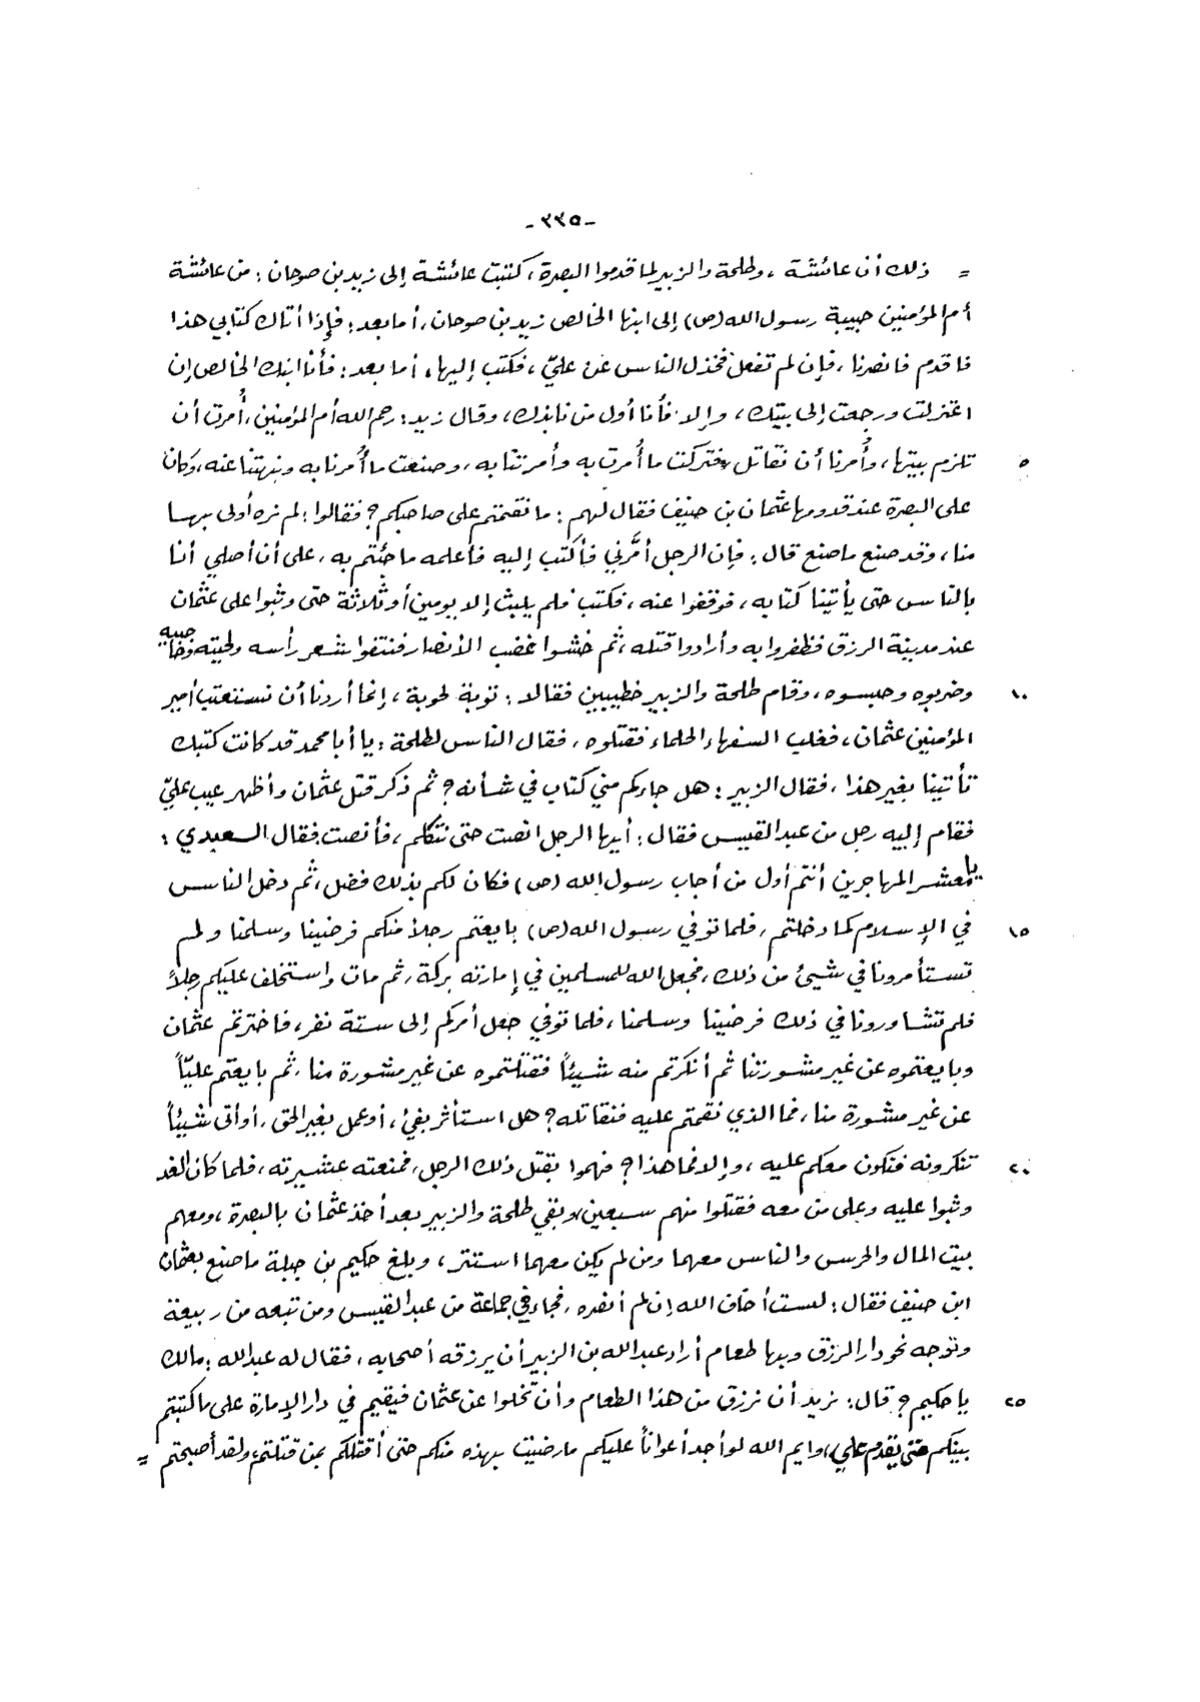 -٣٣٥-
= ذلك أن عائشة ، وطلحة والزبير لما قدموا البصرة ، كتبت عائشة إلى زيد بن صوحان : من عائشة
أم المؤمنين حبيبة رسول الله (ص) إلى ابنها الخالص زيد بن صوحان ، أما بعد : فإذا أتاك كتابي هذا
فاقدم فانصرنا ، فإن لم تفعل فخذل الناس عن عليّ ، فكتب إليها ، أما بعد : فأنا ابنك الخالص إن
اعتزلت ورجعت إلى بيتك ، وإلا فأنا أول من نابذك ، وقال زيد : رحم الله أم المؤمنين ، أُمرت أن
٥ تلزم بيتها ، وأُمرنا أن نقاتل ، فتركت ما أُمرت به وأمرتنا به ، وصنعت ما أُمرنا به ونهتنا عنه ، وكان
على البصرة عند قدومها عثمان بن حنيف فقال لهم : ما نقمتم على صاحبكم ؟ فقالوا : لم نره أولى بها
منا ، وقد صنع ما صنع قال : فإن الرجل أمّرني فأكتب إليه فأعلمه ما جئتم به ، على أن أصلي أنا
بالناس حتى يأتينا كتابه ، فوقفوا عنه ، فكتب فلم يلبث إلا يومين أو ثلاثة حتى وثبوا على عثمان
عند مدينة الرزق فظفروا به وأرادوا قتله ، ثم خشوا غضب الأنصار فنتفوا شعر رأسه ولحيته وحاجبيه
١٠ وضربوه وحبسوه ، وقام طلحة والزبير خطيبين فقالا : توبة لحوبة ، إنما أردنا أن نستعتب أمير
المؤمنين عثمان ، فغلب السفهاء الحلماء فقتلوه ، فقال الناس لطلحة : يا أبا محمد قد كانت كتبك
تأتينا بغير هذا ، فقال الزبير : هل جاءكم مني كتاب في شأنه ؟ ثم ذكر قتل عثمان وأظهر عيب عليّ
فقام إليه رجل من عبد القيس فقال : أيها الرجل انصت حتى نتكلم ، فأنصت فقال السعيدي :
يا معشر المهاجرين أنتم أول من أجاب رسول الله (ص) فكان لكم بذلك فضل ، ثم دخل الناس
١٥ في الإسلام كما دخلتم ، فلما توفي رسول الله (ص) بايعتم رجلاً منكم فرضينا وسلمنا ولم
تستأمرونا في شيئ من ذلك ، فجعل الله للمسلمين في إمارته بركة ، ثم مات واستخلف عليكم رجلاً
فلم تشاورونا في ذلك فرضينا وسلمنا ، فلما توفي جعل أمركم إلى ستة نفر ، فاخترتم عثمان
وبايعتموه عن غير مشورتنا ثم أنكرتم منه شيئاً فقتلتموه عن غير مشورة منا ، ثم بايعتم عليّاً
عن غير مشورة منا ، فما الذي نقمتم عليه فنقاتله ؟ هل استأثر بفيئ ، أو عمل بغير الحق ، أو أتى شيئاً
٢٠ تنكرونه فنكون معكم عليه ، وإلا فما هذا ؟ فهموا بقتل ذلك الرجل ، فمنعته عشيرته ، فلما كان الغد
وثبوا عليه وعلى من معه فقتلوا منهم سبعين ، وبقي طلحة والزبير بعد أخذ عثمان بالبصرة ، ومعهم
بيت المال والحرس والناس معهما ومن لم يكن معهما استتر ، وبلغ حكيم بن جبلة ما صنع بعثمان
ابن حنيف فقال : لست أخاف الله إن لم أنصره ، فجاء في جماعة من عبد القيس ومن تبعه من ربيعة
وتوجه نحو دار الرزق وبها طعام أراد عبد الله بن الزبير أن يرزقه أصحابه ، فقال له عبد الله : مالك
٢٥ يا حكيم ؟ قال : نريد أن نرزق من هذا الطعام وأن تخلوا عن عثمان فيقيم في دار الإمارة على ما كتبتم
بينكم حتى يقدم علي ، وايم الله لو أجد أعواناً عليكم ما رضيت بهذه منكم حتى أقتلكم بمن قتلتم ، ولقد أصبحتم =